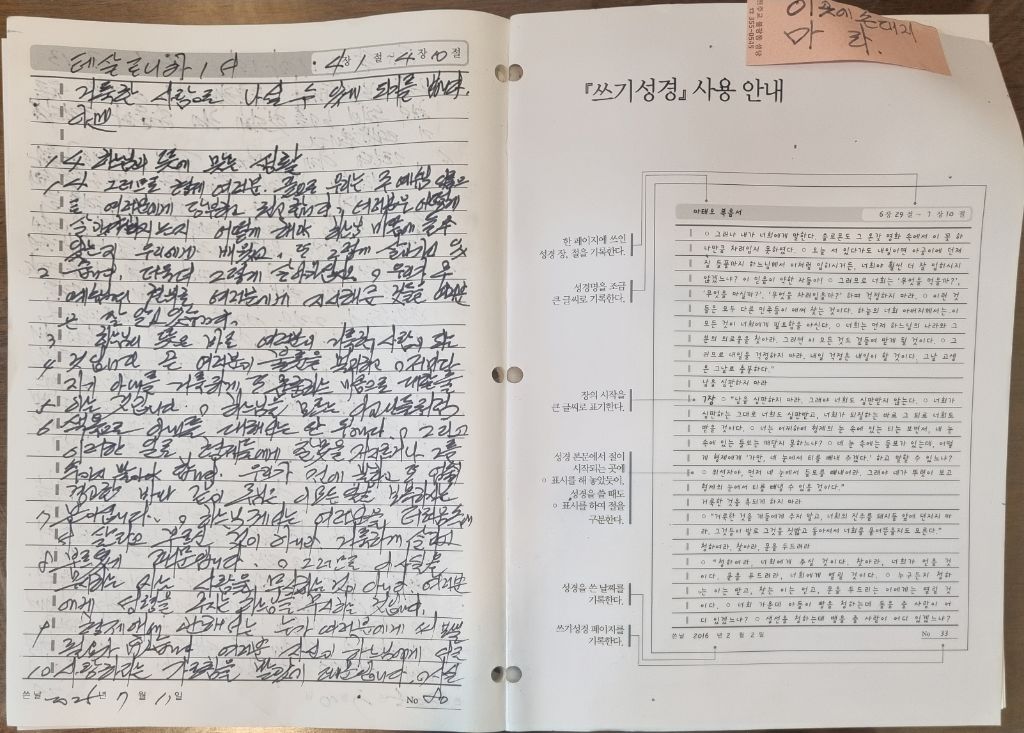 테살로니카 1서 4장 1절~4장 10절
거룩한 사람으로 나설 수 있게 되기를 빕니다.
아멘
1,4 하느님의 뜻에 맞는 생활
1,4 그러므로 형제 여러분, 끝으로 우리는 주 예수님
여러분에게 당부하고
살아야 하는지 어떻게 해야 하느님 마음에 들 수
있는지 우리에게 배웠고, 또 그렇게 살아가고 있
2 습니다. 더욱더 그렇게 살아가십시오. ○ 우리가 주
예수님의 권위로 여러분에게 지시해 준 것들을 여러분
은 잘 알고 있습니다.
3 하느님의 뜻은 바로 여러분이 거룩한 사람이 되는
4 것입니다. 곧 여러분이 불륜을 멀리하고, ○ 저마다
자기 아내를 거룩하게 또 존중하는 마음으로 대할 줄
5 아는 것입니다. ○ 하느님을 모르는 이교인들처럼
6 색욕으로 아내를 대해서는 안 됩니다. ○ 그리고
이러한 일로 형제에게 잘못을 저지르거나 그를
우리가 전에 말하고 또 엄숙히
경고한 바와 같이 주님은 이 모든 일에
7 ○ 하느님께서는 여러분을 더러움 속에
서 살라고 부르신 것이 아니라 거룩하게 살라고
8 부르셨기 때문입니다. ○ 그러므로 이 사실을
무시하는 자는 사람을 무시하는 것이 아니라 여러분
에게 성령을 주시는 하느님을 무시하는 것입니다.
9 형제애에 관해서는 누가 여러분에게 써 보낼
필요가 없습니다. 여러분 자신이 하느님에게 서로
10 사랑하라는 가르침을 받았기 때문입니다. ○ 사실
쓴 날 2025년 7월 11일 No
이곳에 손대지
마라.
355-0545
『쓰기성경』 사용 안내
한 페이지에 쓰인
성경 장, 절을 기록한다.
성경명을 조금
큰 글씨로 기록한다.
장의 시작을
큰 글씨로 표기한다.
성경 본문에서 절이
시작되는 곳에
○ 표시를 해 놓았듯이,
성경을 쓸 때도
○ 표시를 하여 절을
구분한다.
성경을 쓴 날짜를
기록한다.
쓰기성경 페이지를
기록한다.
마태오 복음서 6장 29절 ~ 7장 10절
○ 그러나 내가 너희에게 말한다. 솔로몬도 그 온갖 영화 속에서 이 꽃 하
나만큼 차려입지 못하였다. ○ 오늘 서 있다가도 내일이면 아궁이에 던져
질 들풀까지 하느님께서 이처럼 입히시거든, 너희야 훨씬 더 잘 입히시지
않겠느냐? 이 믿음이 약한 자들아! ○ 그러므로 너희는 '무엇을 먹을까?',
'무엇을 마실까?', '무엇을 차려입을까?' 하며 걱정하지 마라. ○ 이런 것
들은 모두 다른 민족들이 애써 찾는 것이다. 하늘의 너희 아버지께서는 이
모든 것이 너희에게 필요함을 아신다. ○ 너희는 먼저 하느님의 나라와 그
분의 의로움을 찾아라. 그러면 이 모든 것도 곁들여 받게 될 것이다. ○ 그
러므로 내일을 걱정하지 마라. 내일 걱정은 내일이 할 것이다. 그날 고생
은 그날로 충분하다."
남을 심판하지 마라
7장 ○ "남을 심판하지 마라. 그래야 너희도 심판받지 않는다. ○ 너희가
심판하는 그대로 너희도 심판받고, 너희가 되질하는 바로 그 되로 너희도
받을 것이다. ○ 너는 어찌하여 형제의 눈 속에 있는 티는 보면서, 네 눈
속에 있는 들보는 깨닫지 못하느냐? ○ 네 눈 속에는 들보가 있는데, 어떻
게 형제에게 '가만, 네 눈에서 티를 빼내 주겠다.' 하고 말할 수 있느냐?
○ 위선자야, 먼저 네 눈에서 들보를 빼내어라. 그래야 네가 뚜렷이 보고
형제의 눈에서 티를 빼낼 수 있을 것이다."
거룩한 것을 욕되게 하지 마라
○ "거룩한 것을 개들에게 주지 말고, 너희의 진주를 돼지들 앞에 던지지 마
라. 그것들이 발로 그것을 짓밟고 돌아서서 너희를 물어뜯을지도 모른다."
청하여라, 찾아라, 문을 두드려라
○ "청하여라, 너희에게 주실 것이다. 찾아라, 너희가 얻을 것
이다. 문을 두드려라, 너희에게 열릴 것이다. ○ 누구든지 청하
는 이는 받고, 찾는 이는 얻고, 문을 두드리는 이에게는 열릴 것
이다. ○ 너희 가운데 아들이 빵을 청하는데 돌을 줄 사람이 어
디 있겠느냐? ○ 생선을 청하는데 뱀을 줄 사람이 어디 있겠느냐?
쓴날 2016년 2월 2일 No 33